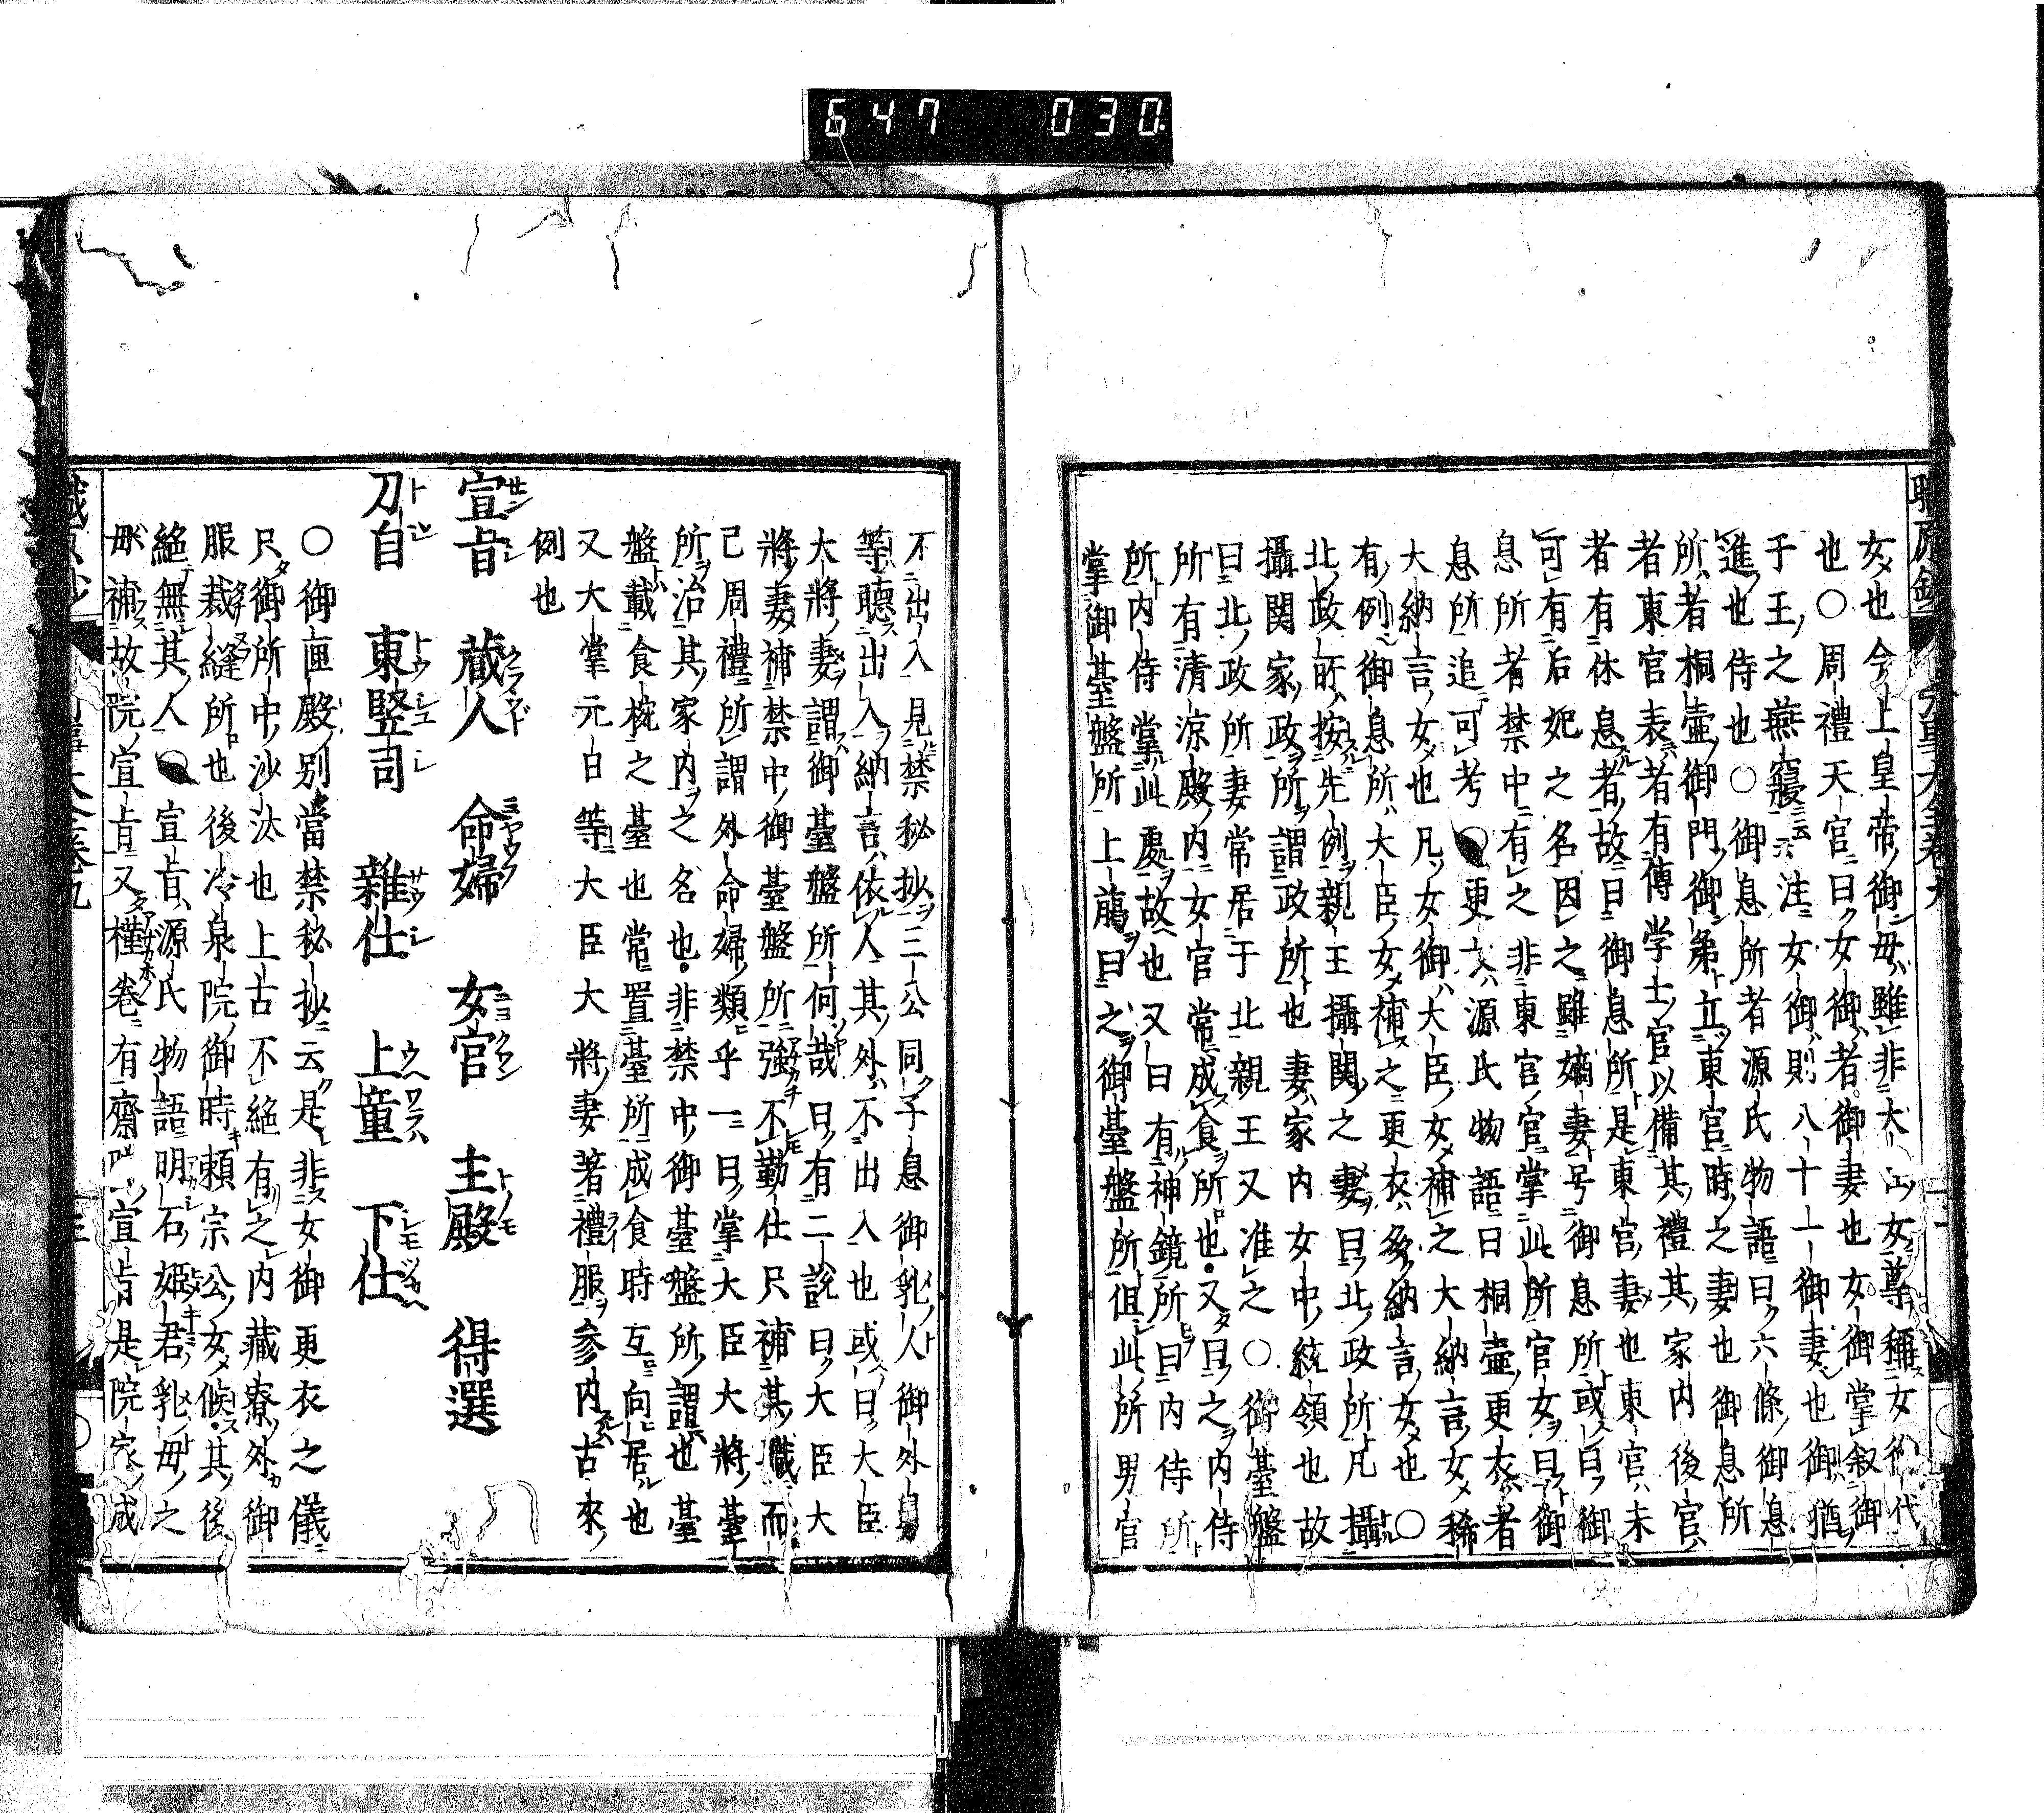 647 030
女也今上皇帝御母雖非大女尊稱女御代
也〇周禮天官曰女御者御妻也女御掌叙御
于王之燕寢云云注女御則八十一御妻也御猶
進也侍也〇御息所者源氏物語曰六條御息
所者桐壺御門御弟立東官時之妻也御息所
者東宮表者有傅学士官以備其禮其家内後官
者有休息者故曰御息所是東宮妻也東官未
可有后妃之名因之雖嫡妻号御息所或曰御
息所者禁中有之非東官官掌此所官女曰御
息所追可考更衣源氏物語曰桐壺更衣者
大納言女也凡女御大臣女補之大納言女稀
有例御息所大臣女補之更衣多納言女也〇
北政所按先例親王攝関之妻曰北政所凡攝
攝関家政所謂政所也妻家内女中統領也故
曰北政所妻常居于北親王又准之〇御臺盤
所有清涼殿内女官常成食所也又曰之内侍
所内侍掌此處故也又曰有神鏡所曰内侍所
掌御臺盤所上﨟曰之御臺盤所但此所男官
不出入見禁秘抄三公同子息御乳人御外舅
等聴出入納言依人其外不出入也或曰大臣
大將妻謂御臺盤所何哉曰有二說曰大臣大
將妻補禁中御臺盤所強不勤仕只補其職而
己周禮所謂外命婦類乎一曰掌大臣大將臺
所治其家内之名也非禁中御臺盤所謂也臺
盤載食椀之臺也常置臺所成食時互向居也
又大掌元日等大臣大將妻著禮服参内古來
例也
宣旨 蔵人 命婦 女官 主殿 得選
刀自 東豎司 雜仕 上童 下仕
〇御匣殿別當禁秘抄云是非女御更衣之儀
只御所中沙汰也上古不絶有之内藏寮外御
服裁縫所也後冷泉院御時頼宗公女候其後
絶無其人 宣旨源氏物語明石姫君乳母之
毋補故院宣旨又槿巻有齋院宣旨是院家咸